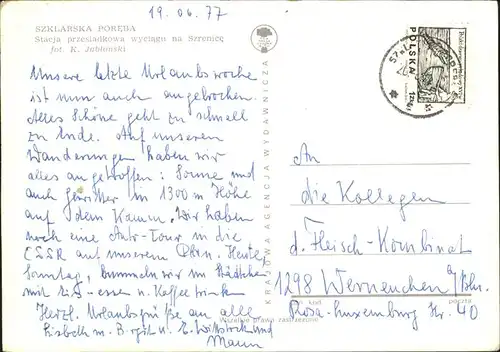 19.06.77
SZKLARSKA PORĘBA
Stacja przesiadkowa wyciągu na Szrenicę
fot. K. Jabłoński
Unsere letzte Urlaubswoche
ist nun auch angebrochen.
Alles Schöne geht zu schnell
zu Ende. Auf unseren
Wanderungen haben wir
alles angetroffen: Sonne und
auch Gewitter in 1300 m Höhe
auf dem Kamm. Wir haben
noch eine Auto-Tour in die
ČSSR auf unserem Plan. Heute,
Sonntag, bummeln wir im Städtchen
mit Eis-essen u. Kaffee trinken
Herzl. Urlaubsgrüße an alle
Lisbeth m. B. u. E. und
Mann
KRAJOWA AGENCJA WYDAWNICZA
Wszelkie prawa zastrzeżone
POLSKA
An
die Kollegen
d. Fleisch-Kombinat
1298 Werneuchen a/Bln.
kod
poczta
Rosa-Luxemburg Str. 40